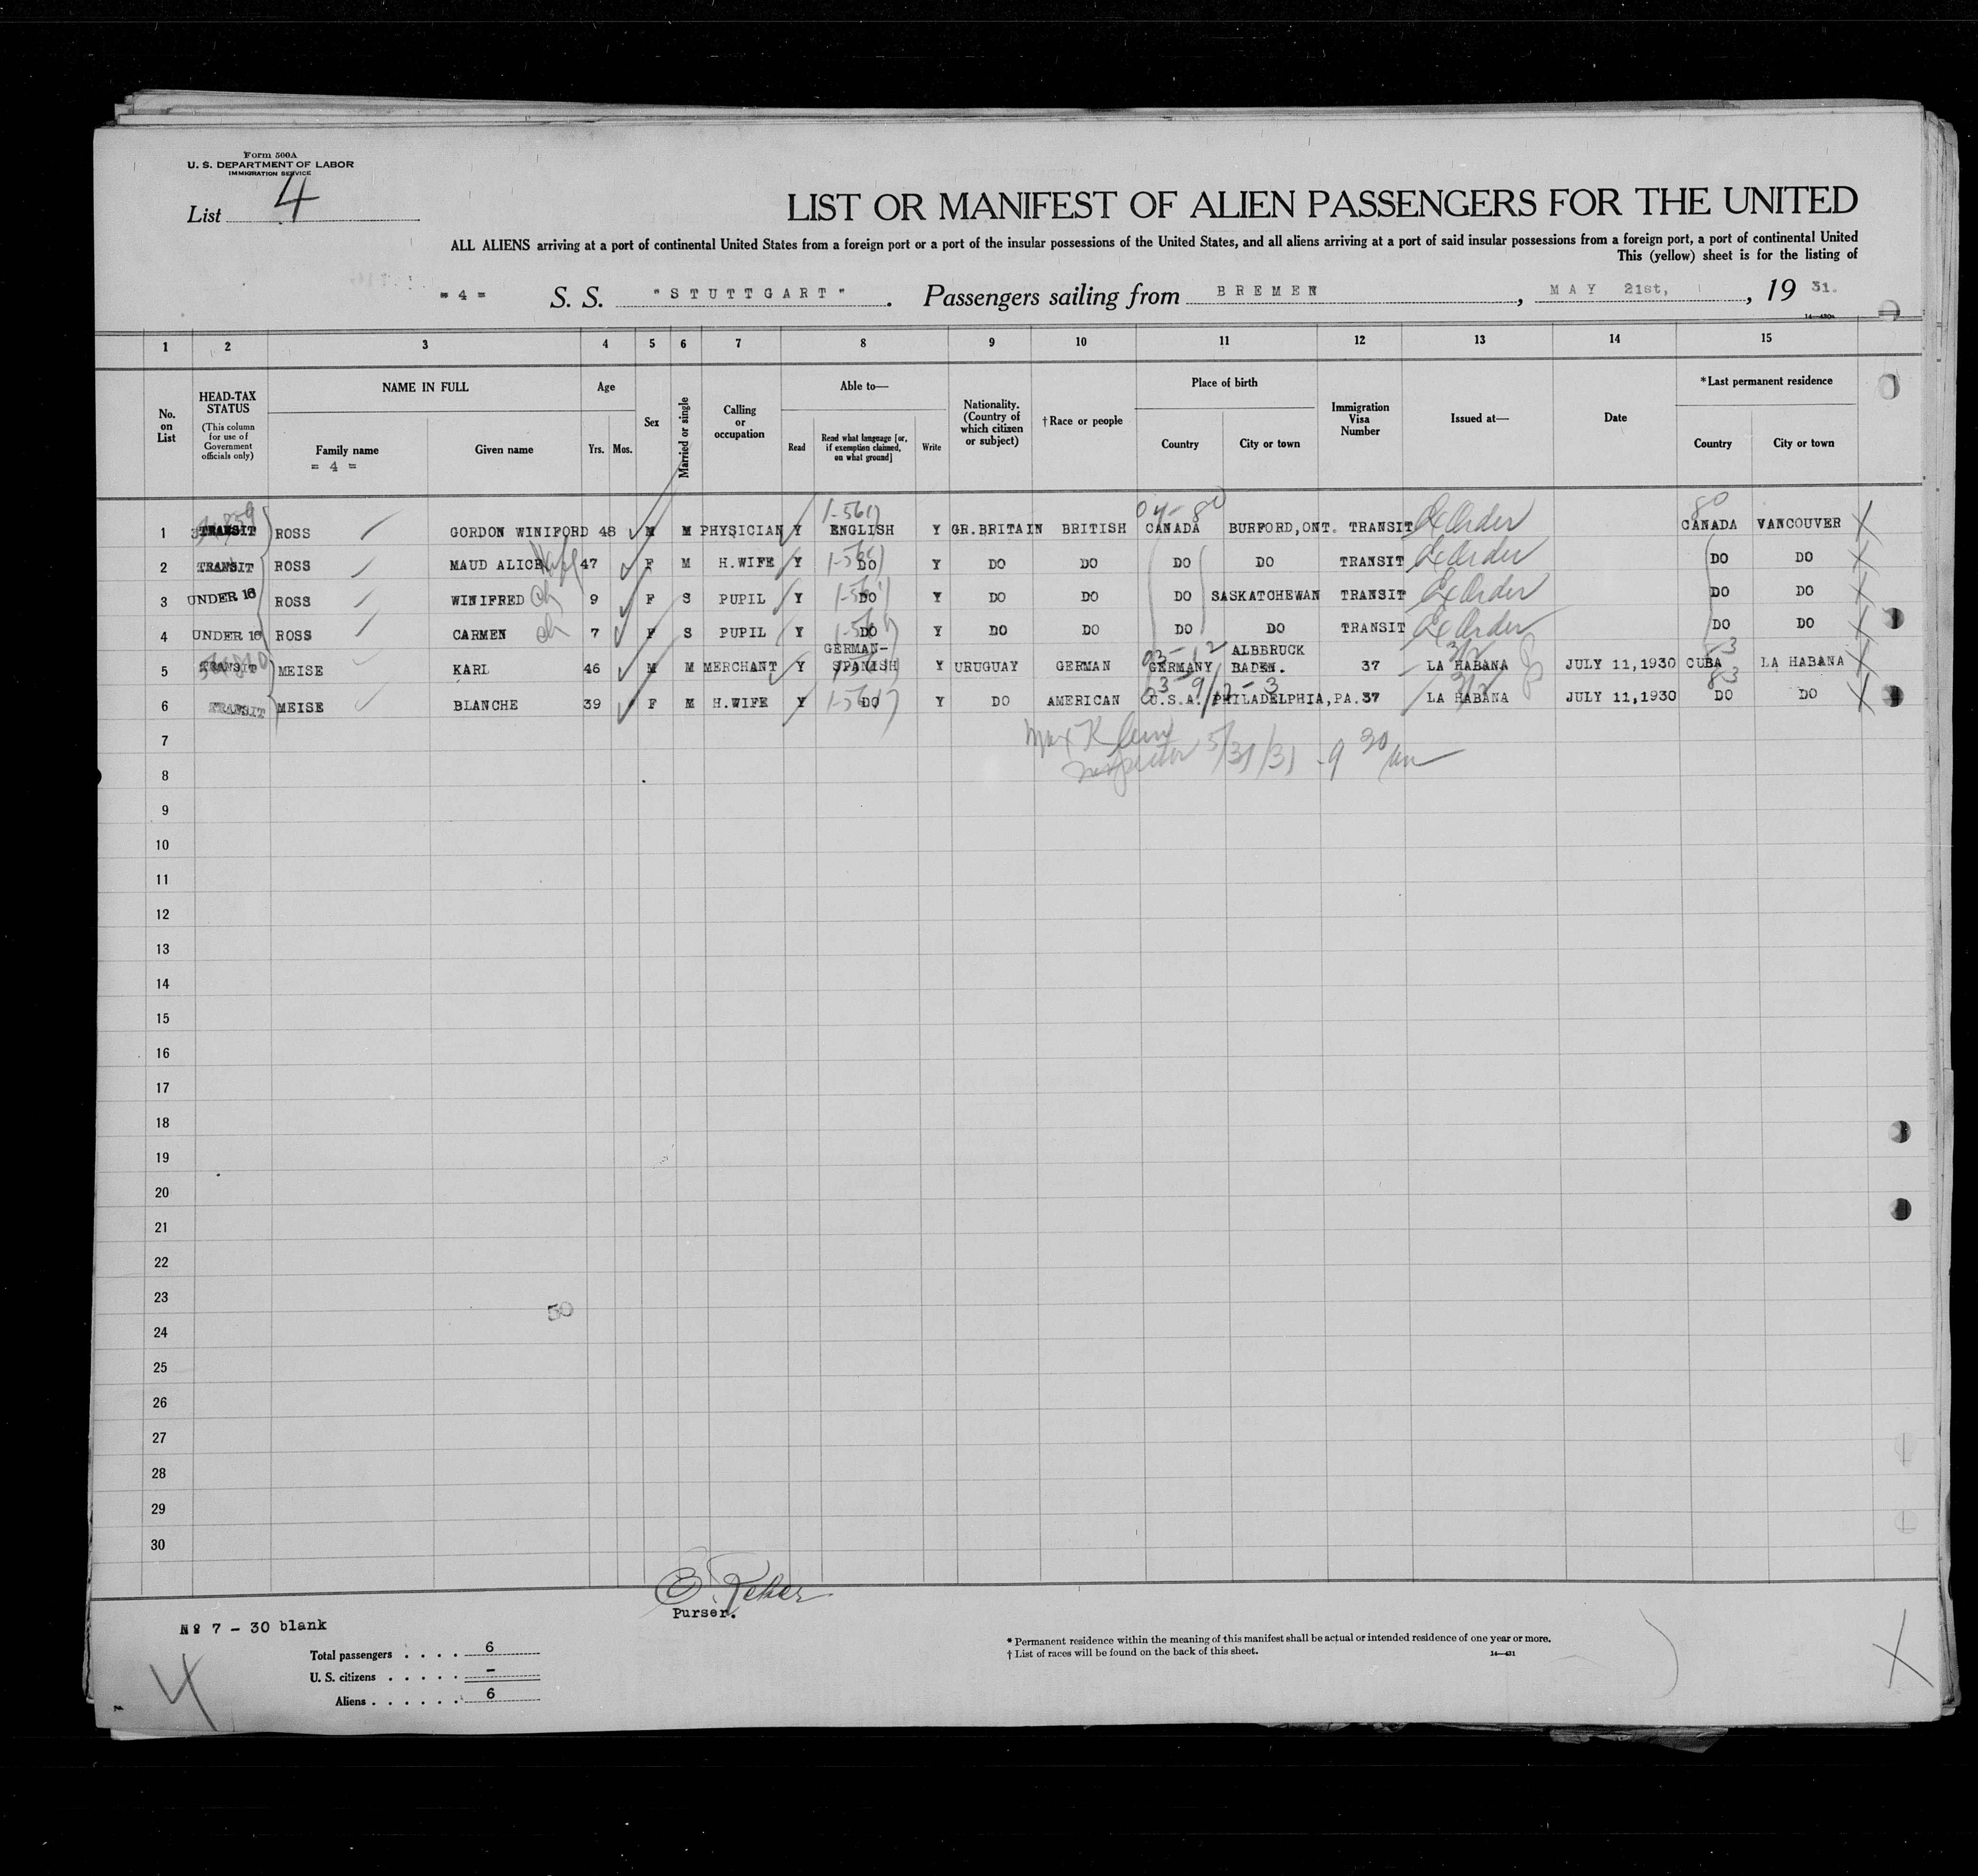 Form 500A
U. S. DEPARTMENT OF LABOR
IMMIGRATION SERVICE
List 4
LIST OR MANIFEST OF ALIEN PASSENGERS FOR THE UNITED
ALL ALIENS arriving at a port of continental United States from a foreign port or a port of the insular possessions of the United States, and all aliens arriving at a port of said insular possessions from a foreign port, a port of continental United
This (yellow) sheet is for the listing of
= 4 = S. S. "STUTTGART". Passengers sailing from BREMEN, MAY 21st, , 19 31.
1 2 3 4 5 6 7 8 9 10 11 12 13 14 15
No. on List
HEAD-TAX STATUS
(This column for use of Government officials only)
NAME IN FULL
Family name
= 4 =
Given name
Age
Yrs. Mos.
Sex
Married or single
Calling or occupation
Able to—
Read
Read what language [or, if exemption claimed, on what ground]
Write
Nationality. (Country of which citizen or subject)
† Race or people
Place of birth
Country
City or town
Immigration Visa Number
Issued at—
Date
*Last permanent residence
Country
City or town
1 TRANSIT ROSS GORDON WINIFORD 48 M M PHYSICIAN Y ENGLISH Y GR.BRITAIN BRITISH CANADA BURFORD,ONT. TRANSIT Ex Order CANADA VANCOUVER
2 TRANSIT ROSS MAUD ALICE Wife 47 F M H.WIFE Y DO Y DO DO DO DO TRANSIT Ex Order DO DO
3 UNDER 16 ROSS WINIFRED Ch 9 F S PUPIL Y DO Y DO DO DO SASKATCHEWAN TRANSIT Ex Order DO DO
4 UNDER 16 ROSS CARMEN Ch 7 F S PUPIL Y DO Y DO DO DO DO TRANSIT Ex Order DO DO
5 TRANSIT MEISE KARL 46 M M MERCHANT Y GERMAN-SPANISH Y URUGUAY GERMAN GERMANY ALBBRUCK BADEN. 37 LA HABANA JULY 11,1930 CUBA LA HABANA
6 TRANSIT MEISE BLANCHE 39 F M H.WIFE Y DO Y DO AMERICAN U.S.A. PHILADELPHIA,PA. 37 LA HABANA JULY 11,1930 DO DO
7 Max Klein
8 Inspector 5/31/31 - 9 30 am
9
10
11
12
13
14
15
16
17
18
19
20
21
22
23
50
24
25
26
27
28
29
30
Purser.
Nº 7 - 30 blank
Total passengers . . . . 6
U. S. citizens . . . . . –
Aliens . . . . . . 6
4
* Permanent residence within the meaning of this manifest shall be actual or intended residence of one year or more.
† List of races will be found on the back of this sheet.
14—431